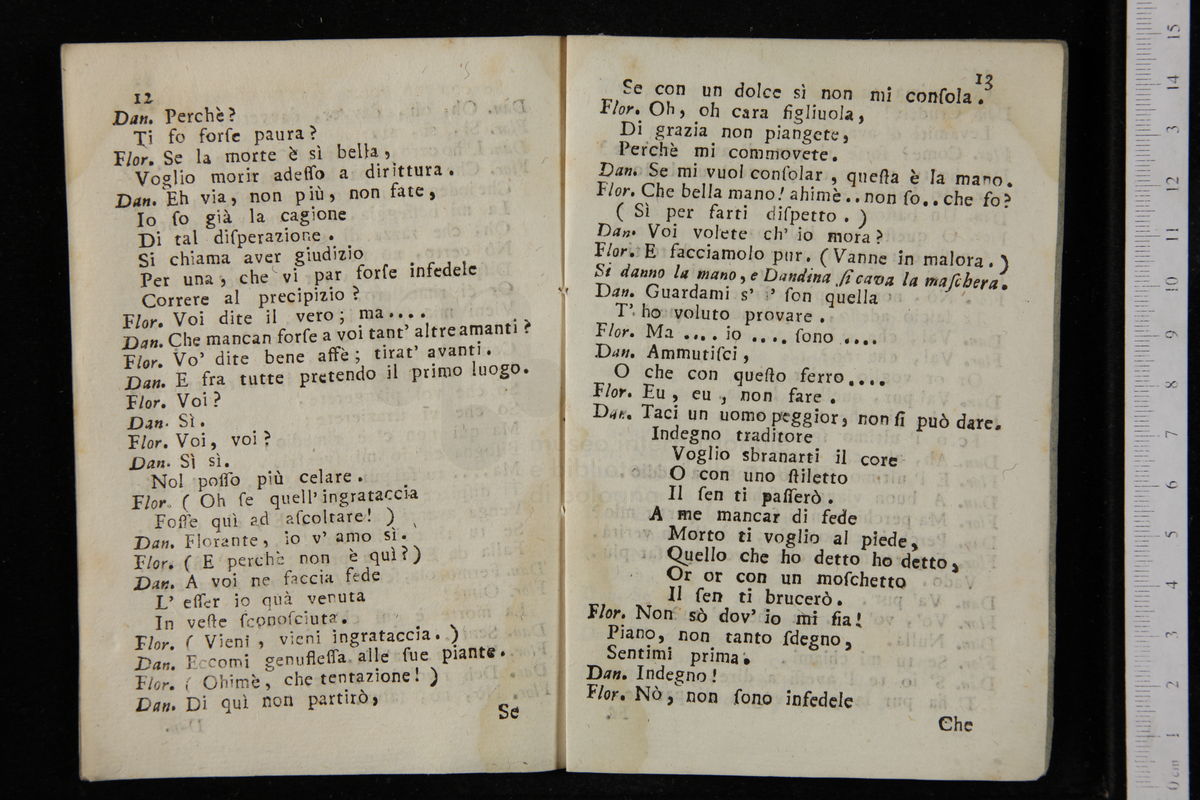 12
Dan. Perchè?
Ti fo forſe paura?
Flor. Se la morte è sì bella,
Voglio morir adeſſo a dirittura.
Dan. Eh via, non più, non fate,
Io ſo già la cagione
Di tal diſperazione.
Si chiama aver giudizio
Per una, che vi par forſe infedele
Correre al precipizio?
Flor. Voi dite il vero; ma....
Dan. Che mancan forſe a voi tant' altre amanti?
Flor. Vo' dite bene affè; tirat' avanti.
Dan. E fra tutte pretendo il primo luogo.
Flor. Voi?
Dan. Sì.
Flor. Voi, voi?
Dan. Sì sì.
Nol poſſo più celare.
Flor. ( Oh ſe quell' ingrataccia
Foſſe quì ad aſcoltare! )
Dan. Florante, io v' amo sì.
Flor. ( E perchè non è quì? )
Dan. A voi ne faccia fede
L' eſſer io quà venuta
In veſte ſconoſciuta.
Flor. ( Vieni, vieni ingrataccia. )
Dan. Eccomi genufleſſa alle ſue piante.
Flor. ( Ohimè, che tentazione! )
Dan. Di quì non partirò,
Se
13
Se con un dolce sì non mi conſola.
Flor. Oh, oh cara figliuola,
Di grazia non piangete,
Perchè mi commovete.
Dan. Se mi vuol conſolar, queſta è la mano.
Flor. Che bella mano! ahimè.. non ſo.. che fo?
( Sì per farti diſpetto. )
Dan. Voi volete ch' io mora?
Flor. E facciamolo pur. (Vanne in malora.)
Si danno la mano, e Dandina ſi cava la maſchera.
Dan. Guardami s' ſon quella
T' ho voluto provare.
Flor. Ma .... io .... ſono ....
Dan. Ammutiſci,
O che con queſto ferro....
Flor. Eu, eu, non fare.
Dan. Taci un uomo peggior, non ſi può dare.
Indegno traditore
Voglio sbranarti il core
O con uno ſtiletto
Il ſen ti paſſerò.
A me mancar di fede
Morto ti voglio al piede,
Quello che ho detto ho detto,
Or or con un moſchetto
Il ſen ti brucerò.
Flor. Non sò dov' io mi ſia!
Piano, non tanto ſdegno,
Sentimi prima.
Dan. Indegno!
Flor. Nò, non ſono infedele
Che